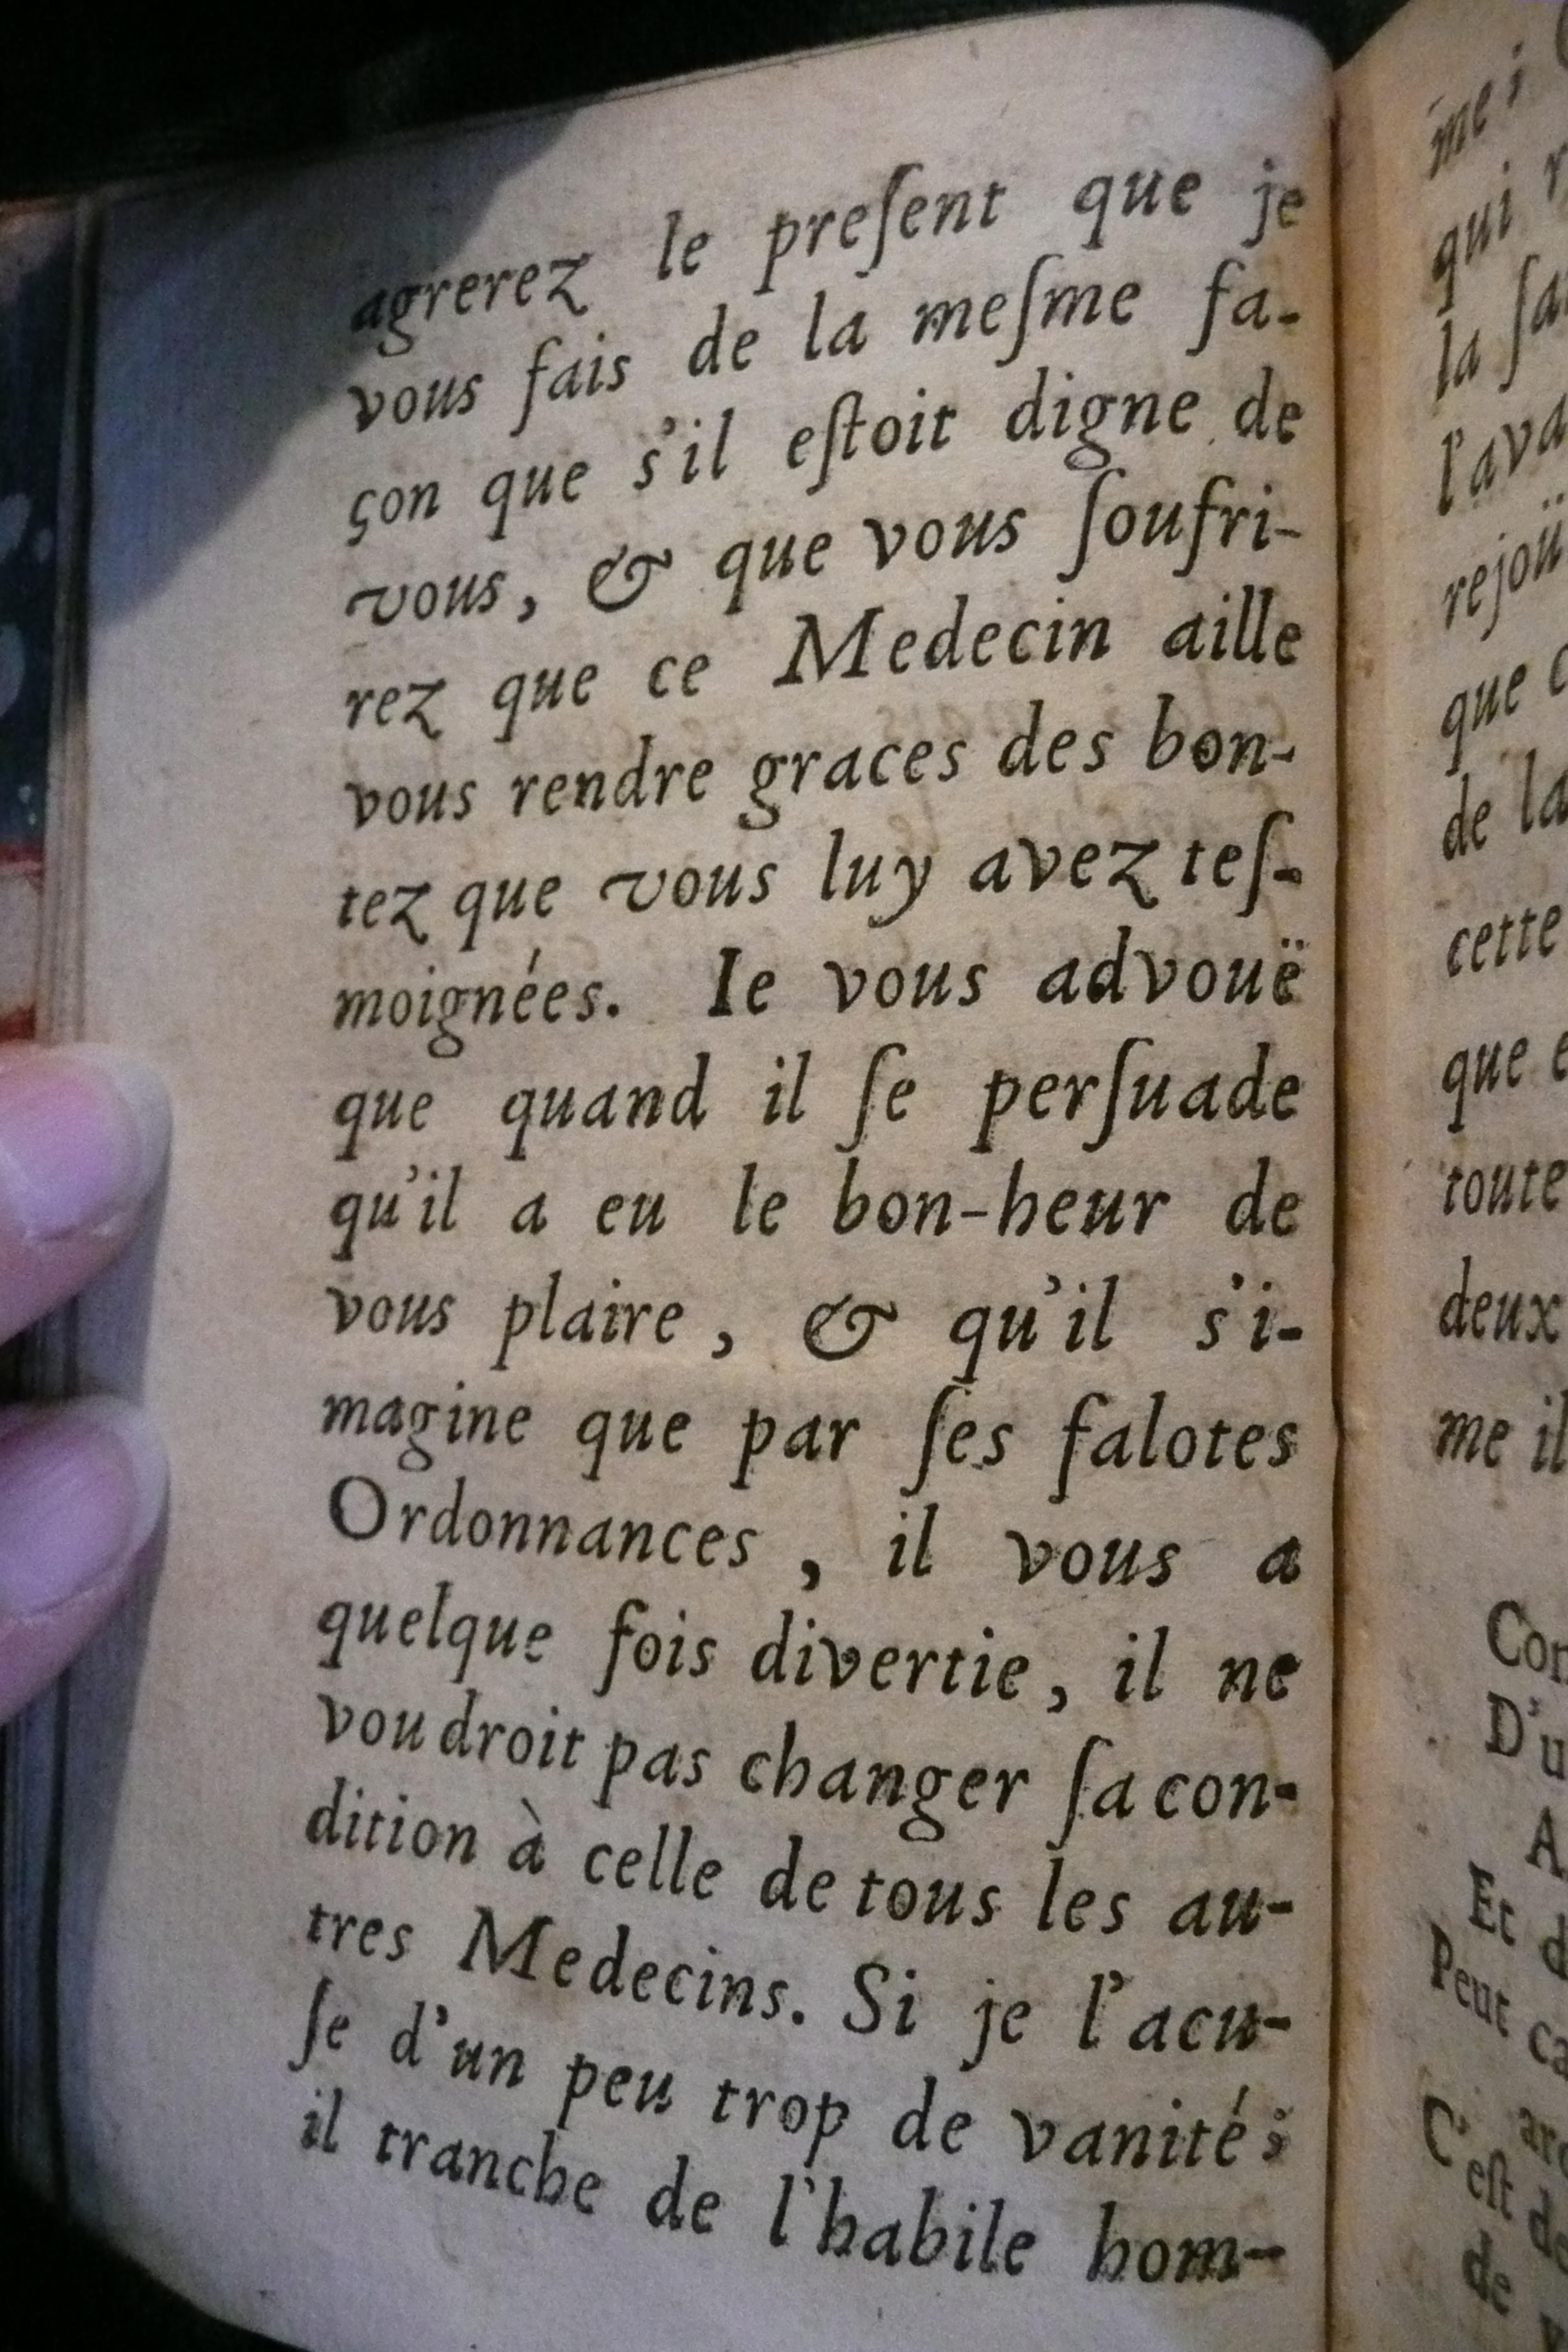 agrerez le preſent que je
vous fais de la meſme fa-
çon que s'il eſtoit digne de
vous, & que vous ſoufri-
rez que ce Medecin aille
vous rendre graces des bon-
tez que vous luy avez teſ-
moignées. Ie vous advouë
que quand il ſe perſuade
qu'il a eu le bon-heur de
vous plaire, & qu'il s'i-
magine que par ſes falotes
Ordonnances, il vous a
quelque fois divertie, il ne
voudroit pas changer ſa con-
dition à celle de tous les au-
tres Medecins. Si je l'acu-
ſe d'un peu trop de vanité;
il tranche de l'habile hom-
me;
qui
la
rejoü
que
de la
cette
que
toute
deux
me il
D'u
Et
Peut
C'eſt
de